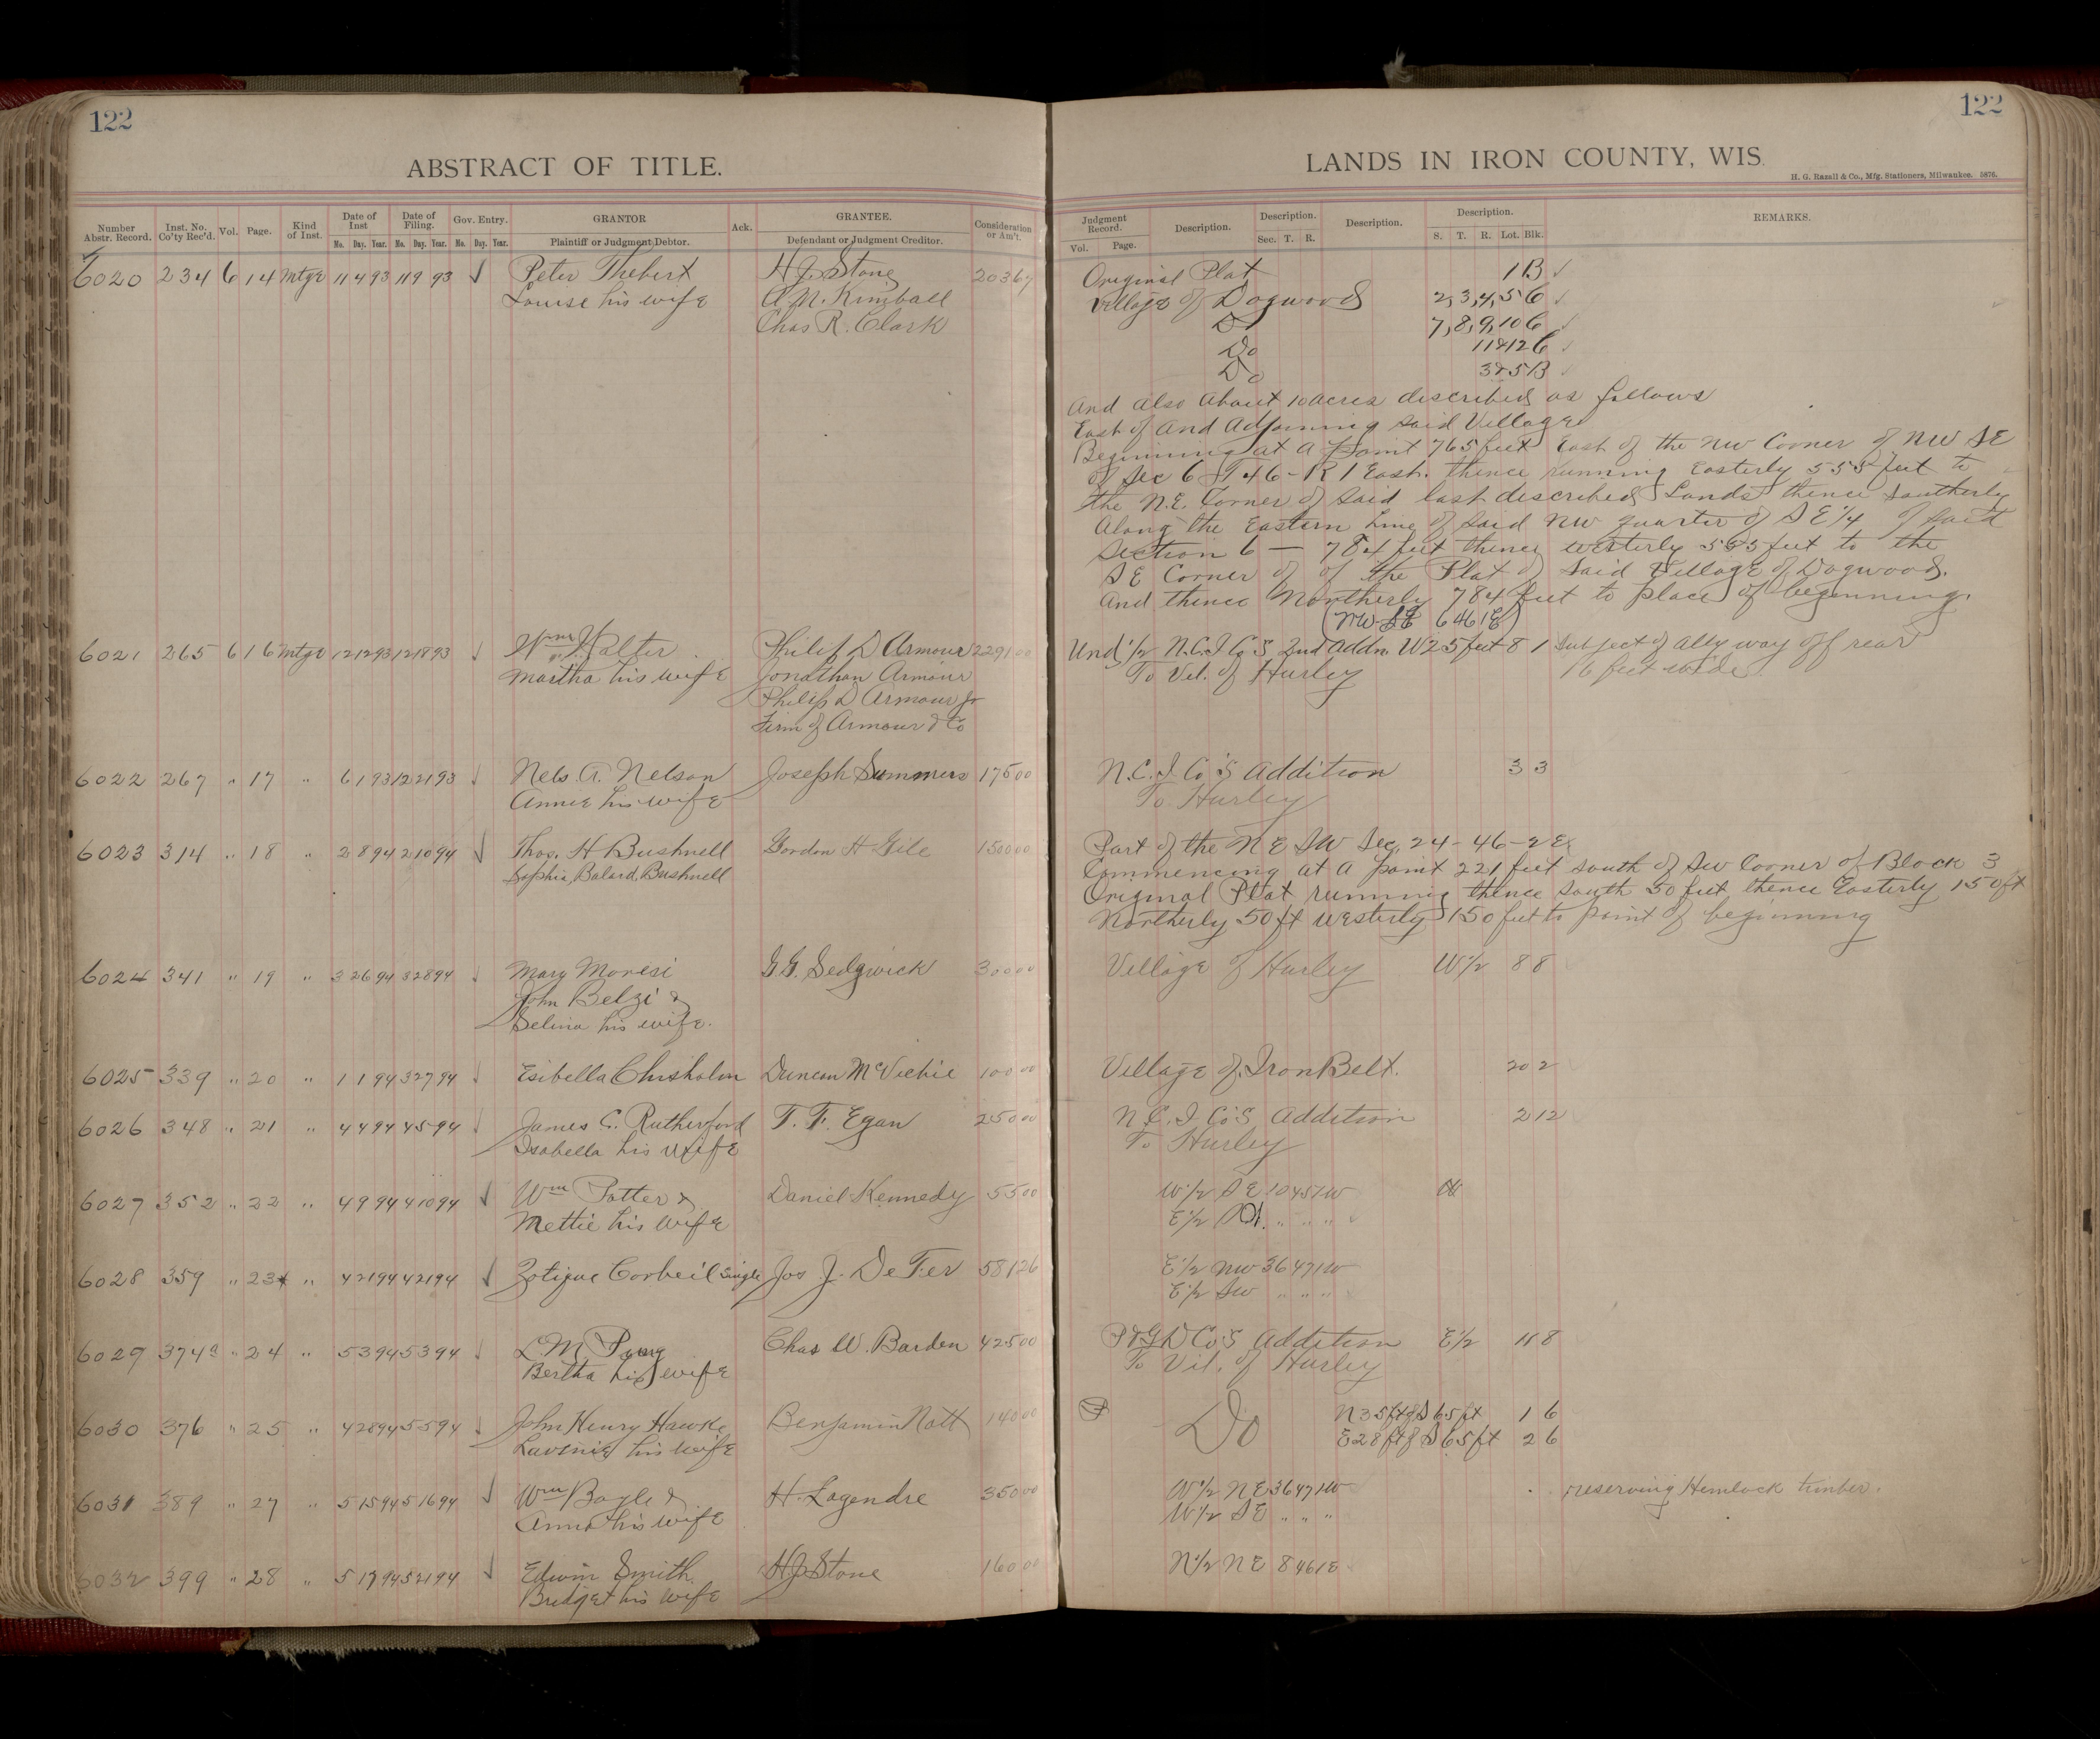 122
ABSTRACT OF TITLE.
Number Abstr. Record. Inst. No. Co'ty Rec'd. Vol. Page. Kind of Inst. Date of Inst Mo. Day. Year. Date of Filing. Mo. Day. Year. Gov. Entry. Mo. Day. Year. GRANTOR Plaintiff or Judgment Debtor. Ack. GRANTEE. Defendant or Judgment Creditor. Consideration or Am't.
6020 234 6 14 Mtge 11 4 93 11 9 93 ✓ Peter Thebert H J Stone 203 67
Louise his wife A. N. Kimball
Chas R. Clark
6021 265 6 16 Mtge 12 12 93 12 18 93 ✓ Wm Walter Philip D Armour 2291 00
Martha his wife Jonathan Armour
Philip D Armour Jr
Firm of Armour & Co
6022 267 " 17 " 6 1 93 12 21 93 ✓ Nels. A. Nelson Joseph Summers 175 00
Annie his wife
6023 314 " 18 " 2 8 94 2 10 94 ✓ Thos. H Bushnell Gordon H Gile 1500 00
Sophia Balard Bushnell
6024 341 " 19 " 3 26 94 3 28 94 ✓ Mary Moresi G. G. Sedgwick 300 00
John Belzi &
Selina his wife.
6025 339 " 20 " 1 1 94 3 27 94 ✓ Esibella Chisholm Duncan McVichie 100 00
6026 348 " 21 " 4 4 94 4 5 94 ✓ James C. Rutherford T. F. Egan 250 00
Isabella his wife
6027 352 " 22 " 4 9 94 4 10 94 ✓ Wm Potter & Daniel Kennedy 55 00
Mettie his wife
6028 359 " 23 " 4 21 94 4 21 94 ✓ Zotique Corbeil Single Jos J. De Fer 581 26
6029 374a " 24 " 5 3 94 5 3 94 ✓ L M Chas W. Barden 425 00
Bertha his wife
6030 376 " 25 " 4 28 94 5 5 94 ✓ John Henry Hawke Benjamin Nott 140 00
Lavinia his wife
6031 389 " 27 " 5 15 94 5 16 94 ✓ Wm Bayle & H. Lagendre 350 00
Anna his wife
6032 399 " 28 " 5 19 94 5 21 94 ✓ Edwin Smith H J Stone 160 00
Bridget his wife
122
LANDS IN IRON COUNTY, WIS.
H. G. Razall & Co., Mfg. Stationers, Milwaukee. 5876.
Judgment Record. Vol. Page. Description. Description. Sec. T. R. Description. Description. S. T. R. Lot. Blk. REMARKS.
Original Plat 1 B ✓
Village of Dogwood 2, 3, 4, 5 6 ✓
Do 7, 8, 9, 10 6 ✓
Do 11&12 6 ✓
Do 3&5 B ✓
And also About 10 acres described as follows
East of and Adjoining said Village
Beginning at a point 765 feet East of the NW Corner of NW SE
of Sec 6 T 46 - R 1 East. thence running Easterly 555 feet to
the N.E. Corner of said last described Lands thence Southerly
Along the Eastern Line of said NW quarter of SE 1/4 of said
Section 6 — 784 feet thence westerly 555 feet to the
SE Corner of of the Plat of said Village of Dogwood.
And thence Northerly 784 feet to place of beginning.
(NW SE 6 46 1E)
Und 1/2 N.C.I Co's 2nd Addn W 25 feet 8 1 Subject of ally way off rear
To Vil. of Hurley 16 feet wide.
N.C.I Co's Addition 3 3
To Hurley
Part of the NE SW Sec, 24-46-2E
Commencing at a point 221 feet south of SW Corner of Block 3
Original Plat running thence South 50 feet thence Easterly 150 ft
Northerly 50 ft westerly 150 feet to point of beginning
Village of Hurley W 1/2 8 8
Village of Iron Belt. 20 2
N.C.I Co's Addition 2 12
To Hurley
W 1/2 SE 10 45 1W
E 1/2 " " "
E 1/2 NW 36 47 1W
E 1/2 SW " " "
P&G D Co's Addition E 1/2 11 8
To Vil. of Hurley
Do N 35 ft of S 65 ft 1 6
E 28 ft of S 65 ft 2 6
W 1/2 NE 36 47 1W reserving Hemlock timber.
W 1/2 SE " " "
N 1/2 NE 8 46 1E